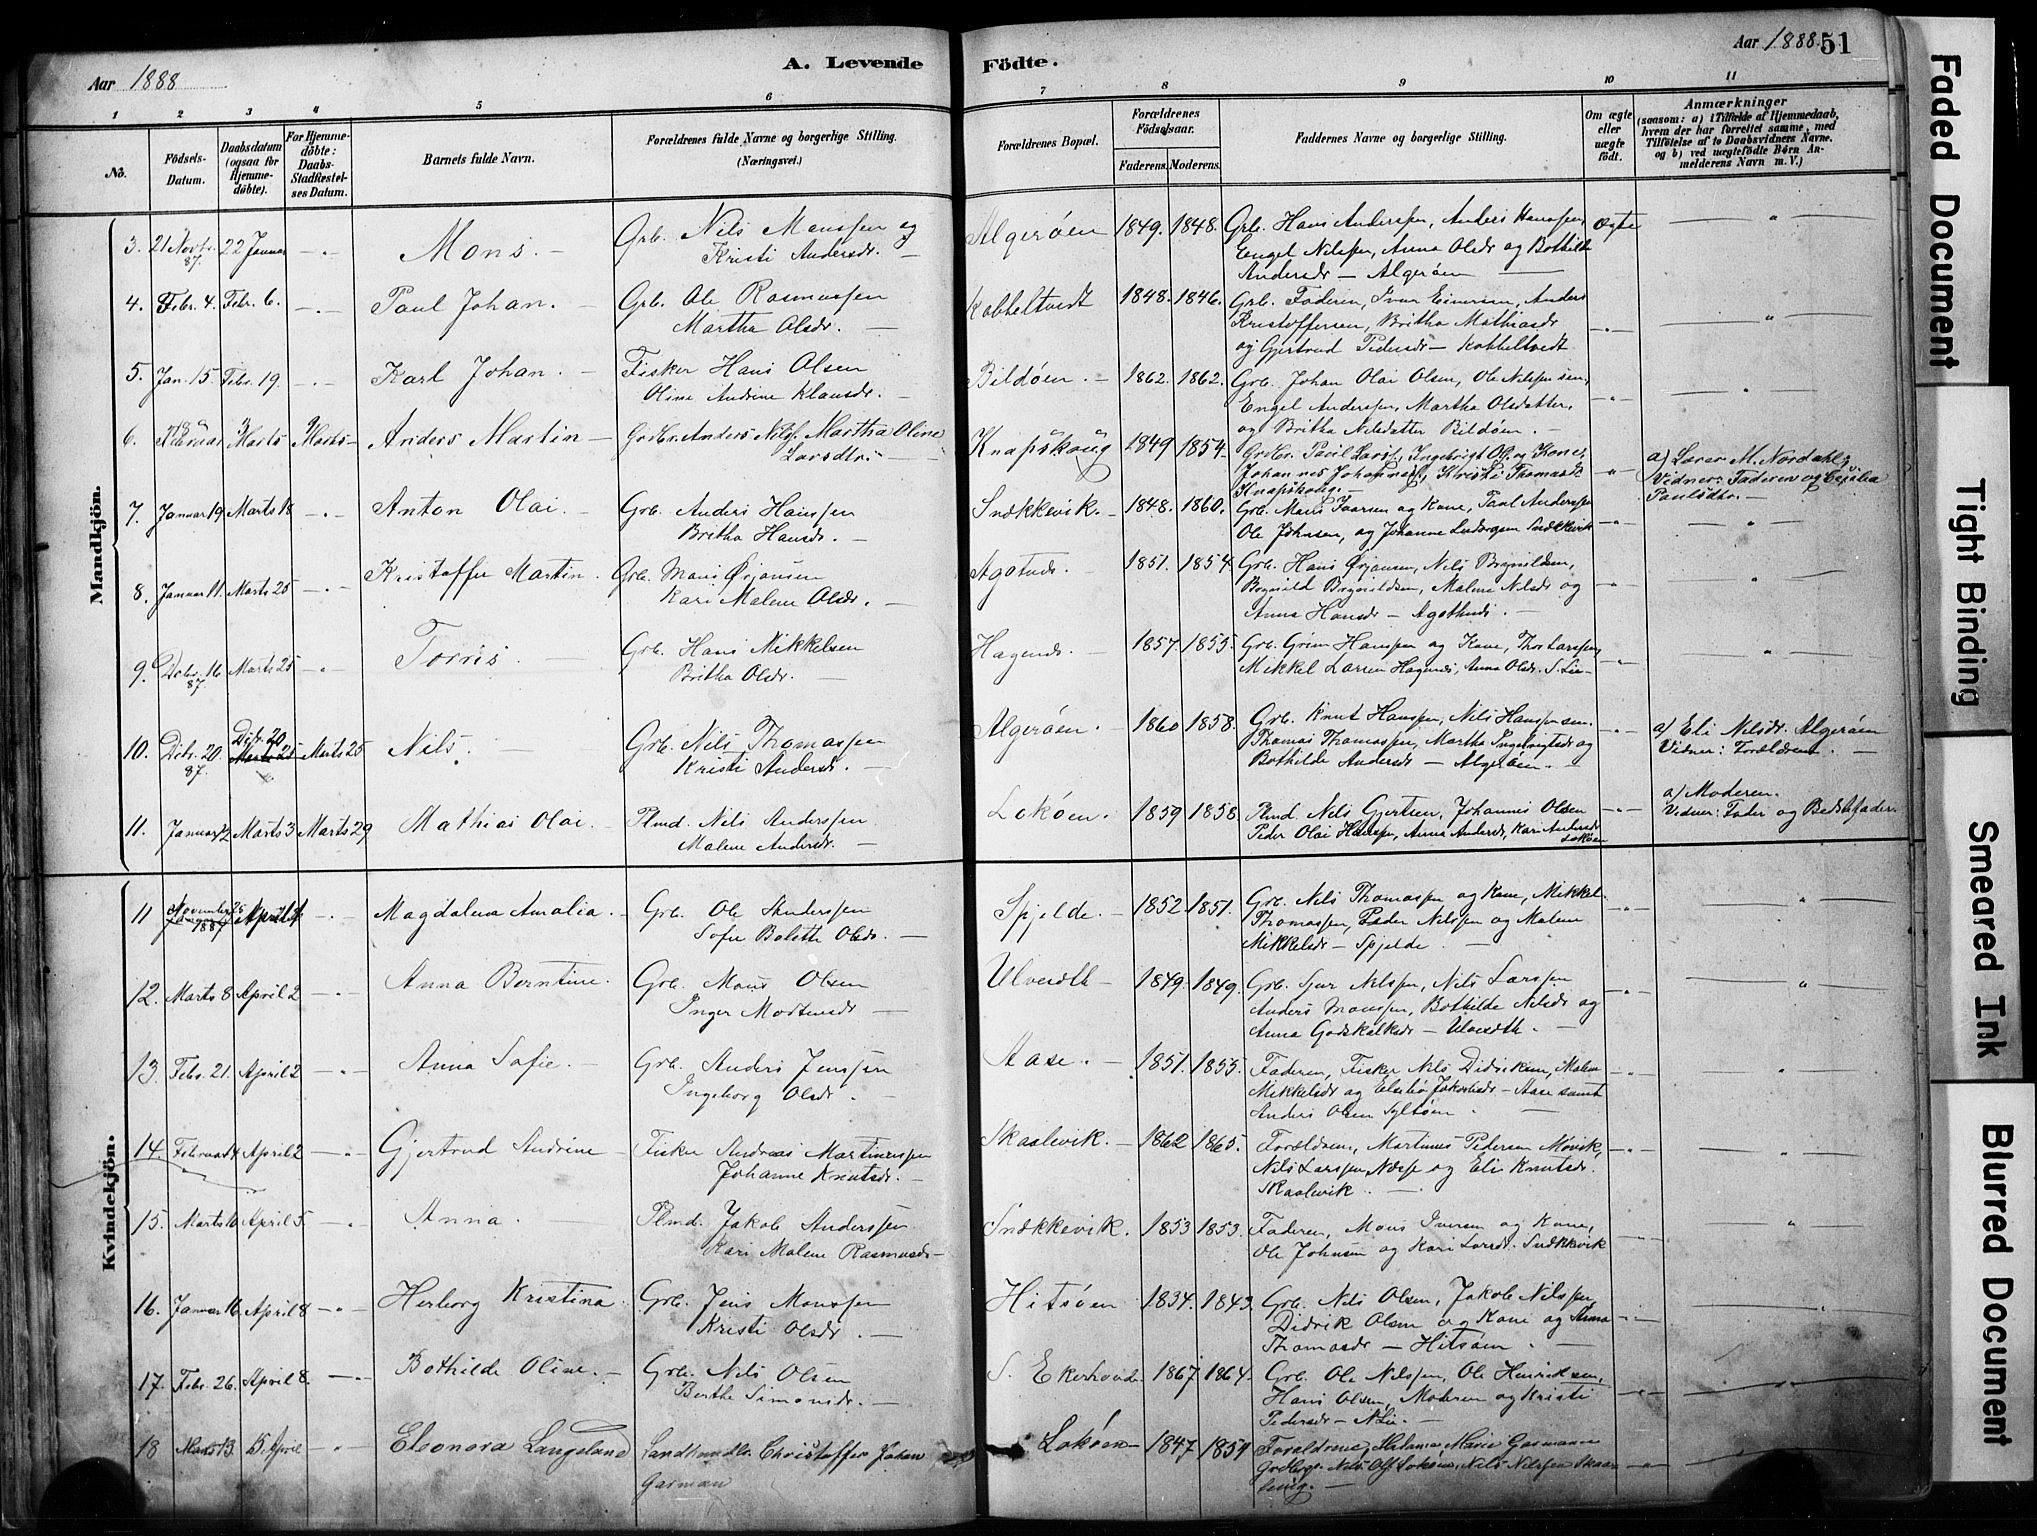 Aar 1888
A. Levende
Födte.
Aar 1888.
51
1 2 3 4 5 6 7 8 9 10 11
No.
Födsels-Datum.
Daabsdatum (ogsaa for Hjemme-döbte).
For Hjemme-döbte: Daabs-Stadfæstelses Datum.
Barnets fulde Navn.
Forældrenes fulde Navne og borgerlige Stilling.
(Næringsvei.)
Forældrenes Bopæl.
Forældrenes Födselsaar.
Faderens. Moderens.
Faddernes Navne og borgerlige Stilling.
Om ægte eller uægte födt.
Anmærkninger
(saasom: a) i Tilfælde af Hjemmedaab, hvem der har forrettet samme, med Tilföielse af to Daabsvidners Navne. og b) ved uægtefödte Börn Anmelderens Navn m. V.)
Mandkjön.
3. 21 Novbr. 87. 22 Januar Mons. Grb. Nils Monssen og Kristi Andersdr. Algerøen 1849. 1848. Grb. Hans Anderssen, Anders Hanssen, Engel Nilssen, Anna Olsdr og Bothilde Andersdr – Algerøen Ægte
4. Febr. 4. Febr. 6. Paul Johan. Grb. Ole Rasmussen Martha Olsdr. Kobbeltvedt 1848. 1846. Grb. Faderen, Ivar Einersen, Anders Kristoffersen, Britha Mathiasdr og Gjertrud Pedersdr – Kobbeltvedt
5. Jan. 15. Febr. 19. Karl Johan. Fisker Hans Olsen Oline Andrine Klausdr. Bildøen. 1862. 1862. Grb. Johan Olai Olsen, Ole Nilssen, Engel Anderssen, Martha Olsdatter, og Britha Nilsdatter Bildøen.
6. Marts Marts Anders Martin Grdbr. Anders Nilss. Martha Oline Larsdtr. Knapskoug 1849 1854. Grdbr. Paul Larss., Ingebrigt Ols. og Kone, Johannes Johanness., Kristi Thomasdr Knapskoug. a) Lærer M. Nordahl, Vidner: Faderen og Paulsdtr.
7. Januar 19 Marts 18 Anton Olai. Grb. Anders Hanssen Britha Hansdr. Snekkevik. 1848. 1860. Grb. Mons Iversen og Kone, Paul Anderssen, Ole Johnsen, og Johanne Snekkevik
8. Januar 11. Marts 25 Kristoffer Martin. Grb. Mons Ørjansen Kari Malene Olsdr. Agotnes. 1851. 1854. Grb. Hans Ørjansen, Nils Brynildsen, Brynild Brynildsen, Malene Nilsdr og Anna Hansdr – Agothnes.
9. Debr. 16 87. Marts 25 Torris. Grb. Hans Mikkelsen Britha Olsdr. Hagenes. 1857. 1855. Grb. Grim Hanssen og Kone, Thor Larssen, Mikkel Larsen Hagenes, Anna Olsdr. S. Lie
10. Debr. 20. 87. Dcbr. 20 Marts 25 Marts 25 Nils. Grb. Nils Thomassen Kristi Andersdr. Algerøen. 1860 1858. Grb. Knut Hanssen, Nils Hanssen, Thomas Thomassen, Martha Ingebrigtsdr og Bothilde Andersdr – Algerøen. a) Eli Nilsdr. Algerøen Vidner: Forældrene.
11. Januar 12 Marts 3 Marts 29 Mathias Olai. Plmd. Nils Anderssen Malene Andersdr. Lokøen. 1859 1858. Plmd. Nils Gjertsen, Johannes Olsen Peder Olai Hanssen, Anna Andersdr, Kari Andersdr Lokøen a) Moderen. Vidner: Fader og Bedstefader.
Kvindekjön.
11 November 25 1887 April Magdalena Amalia. Grb. Ole Anderssen Sofie Bolette Olsdr. Spjelde. 1852 1851. Grb. Nils Thomassen og Kone, Mikkel Thomassen, Peder Nilssen og Malene Mikkelsdr – Spjelde.
12. Marts 8 April 2 Anna Berntine. Grb. Mons Olsen Inger Mortensdr Ulvesæth 1849. 1849. Grb. Sjur Nilssen, Nils Larssen Anders Monssen, Bothilde Nilsdr og Anna Godskalksdr – Ulvesæth.
13. Febr. 21. April 2 Anna Sofie. Grb. Anders Jenssen Ingeborg Olsdr. Aase. 1851. 1855. Faderen, Fisker Nils Didriksen, Malene Mikkelsdr og Elsebe Jakobsdr – Aase samt Anders Olsen Syltøen.
14. Februar 4 April 2 Gjertrud Andrine Fisker Andreas Martinussen Johanne Knutsdr. Skaalevik. 1862 1865. Forældrene, Martinus Pedersen Møvik, Nils Larssen Næsse og Eli Knutsdr. Skaalevik.
15. Marts 10 April 5 Anna. Plmd. Jakob Anderssen Kari Malene Rasmusdr Snekkevik. 1853 1853. Faderen, Mons Iversen og Kone, Ole Johnsen og Kari Larsdr. Snekkevik
16. Januar 16. April 8 Herborg Kristina. Grb. Jens Monssen Kristi Olsdr. Hitsøen 1834. 1843. Grb. Nils Olsen, Jakob Nilssen Didrik Olsen og Kone og Anna Thomasdr – Hitsøen.
17. Febr. 26. April 8. Bothilde Oline. Grb. Nils Olsen Berthe Simonsdr. S. Ekerhovde 1867 1864. Grb. Ole Nilssen, Ole Henriksen, Hans Olsen, Moderen og Kristi Pedersdr – N. Lie.
18 Marts 13. 15 April Eleonora Langeland Landhandler Christoffer Johan Garman Lokøen 1847 1859 Forældrene, Helene Marie Garmann Grdbrgr. Nils Ols. Lokøen, Nils Nilssen
Faded Document
Tight Binding
Smeared Ink
Blurred Document